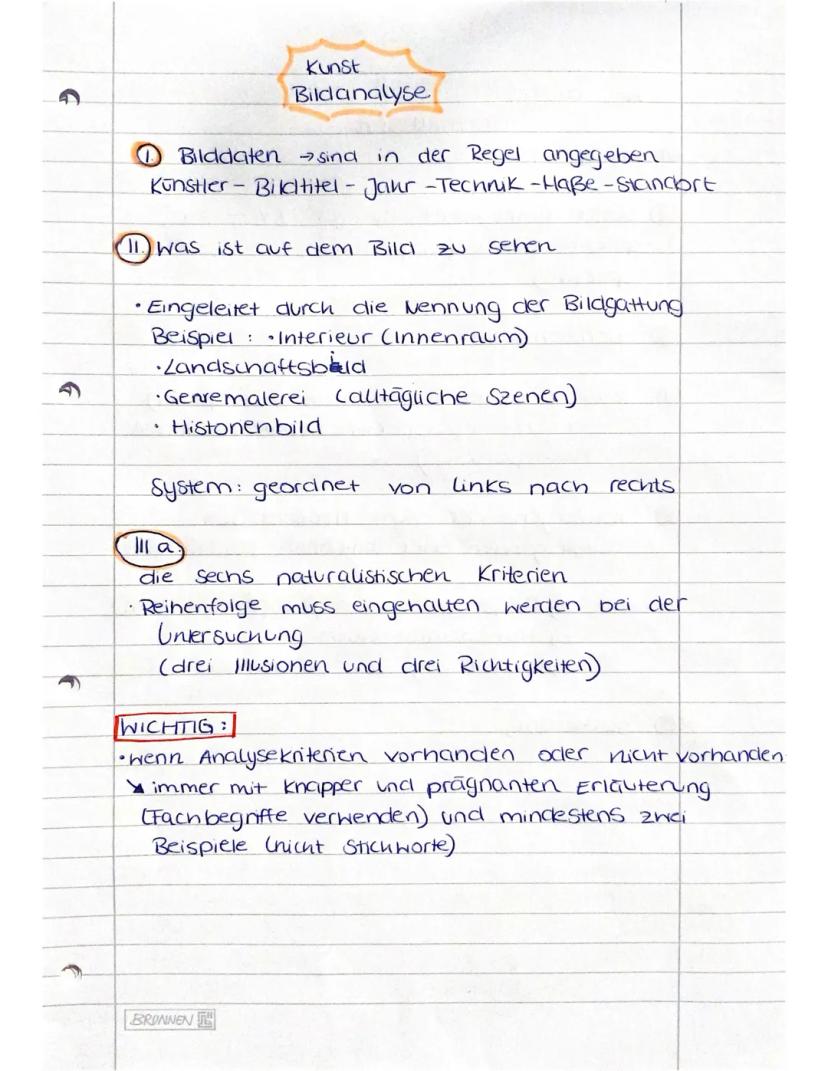 Kunst
Bildanalyse
I. Bilddaten → sind in der Regel angegeben
Künstler - Bildtitel - Jahr - Technik - Maße - Standort
II. Was ist auf dem Bild zu sehen
• Eingeleitet durch die Nennung der Bildgattung
Beispiel : • Interieur (Innenraum)
• Landschaftsbild
• Genremalerei (alltägliche Szenen)
• Historienbild
System: geordnet von links nach rechts
III a.
die sechs naturalistischen Kriterien
• Reihenfolge muss eingehalten werden bei der
Untersuchung
(drei Illusionen und drei Richtigkeiten)
WICHTIG:
• wenn Analysekriterien vorhanden oder nicht vorhanden
↘ immer mit knapper und prägnanten Erläuterung
(Fachbegriffe verwenden) und mindestens zwei
Beispiele (nicht Stichworte)
BRUNNEN